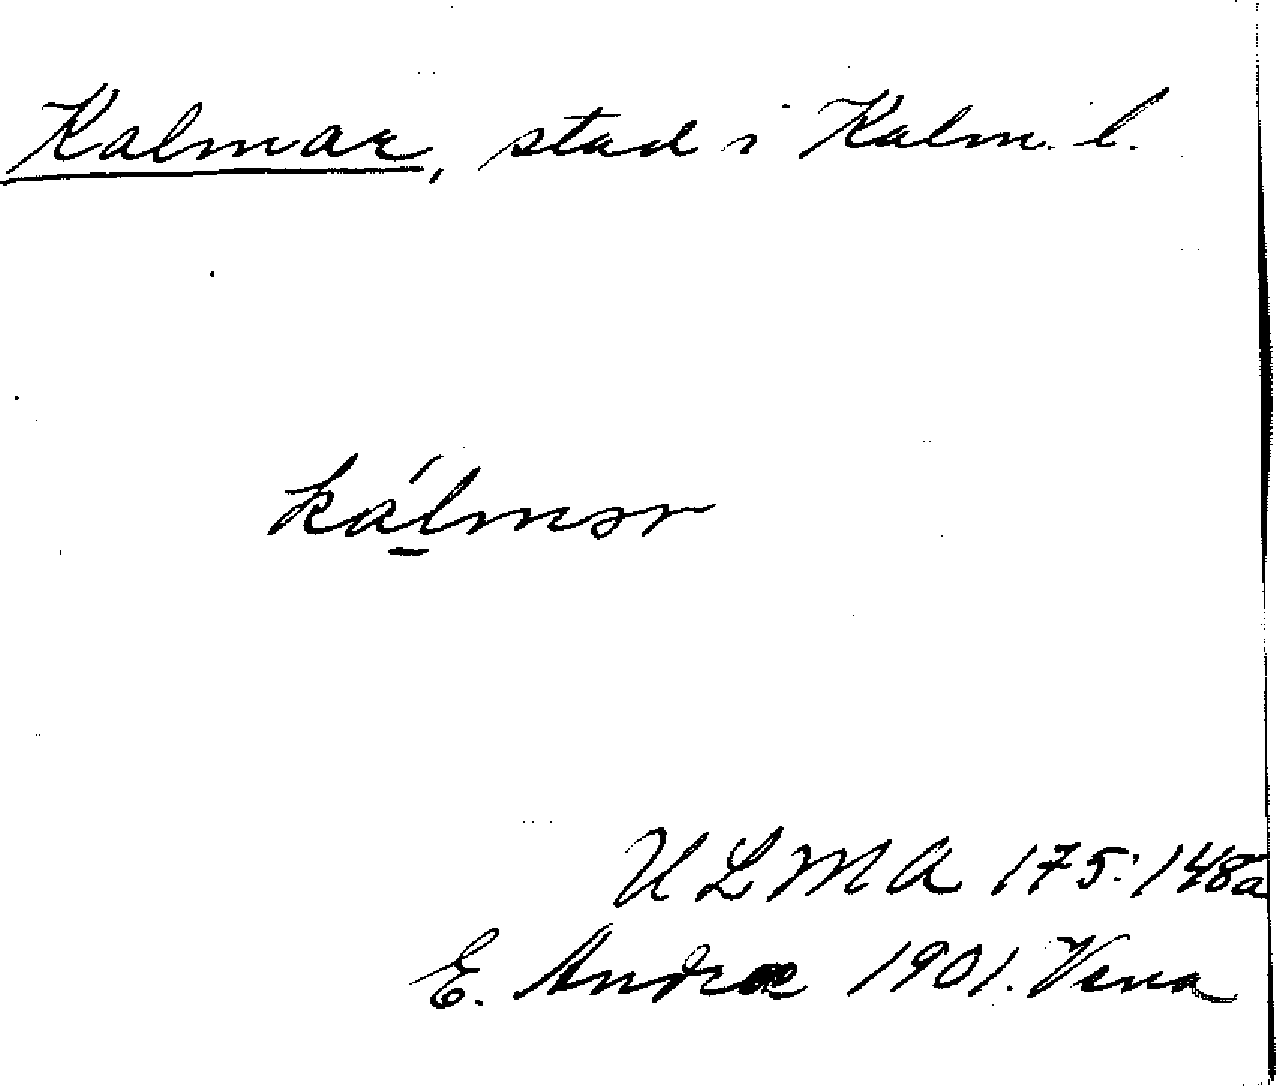 Kalmar, stad i Kalm. l.
kálmər
ULMA 175:148a
E. Andræ 1901. Vena